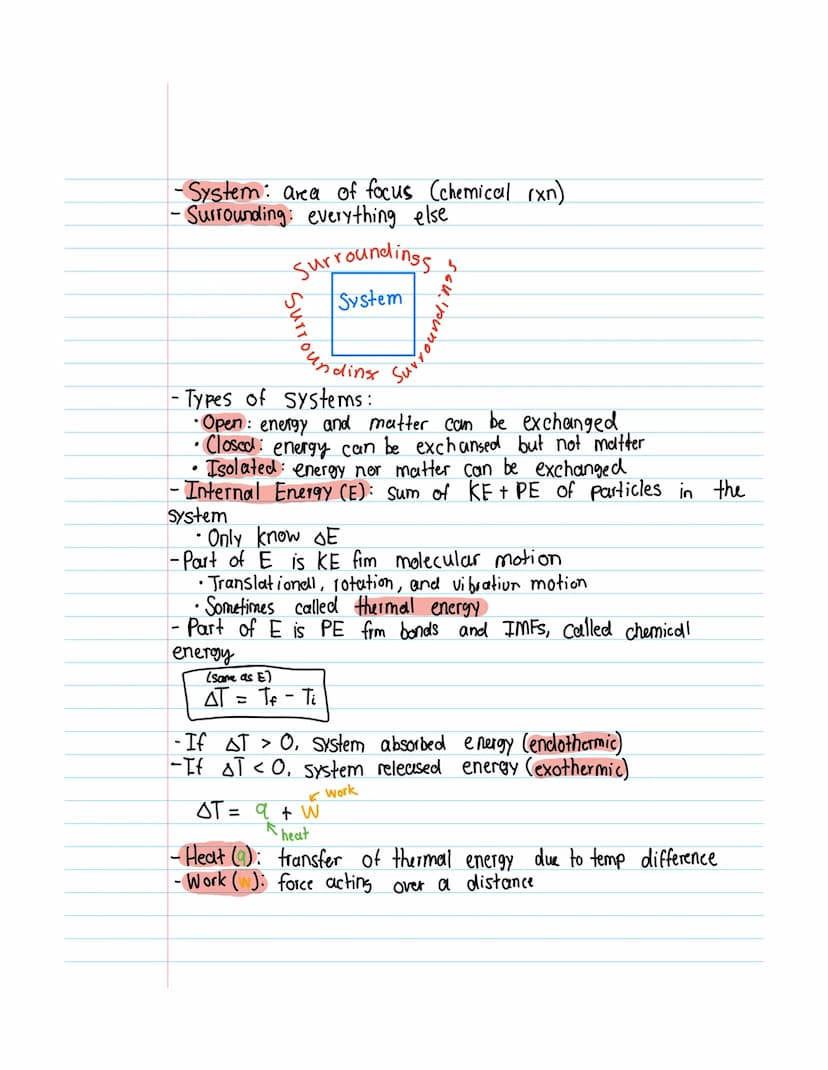 - System: area of focus (chemical rxn)
- Surrounding: everything else
Surroundings
System
Surroundings
Surrounding
Surroundings
- Types of systems:
• Open: energy and matter can be exchanged
• Closed: energy can be exchanged but not matter
• Isolated: energy nor matter can be exchanged
- Internal Energy (E): sum of KE + PE of particles in the
system
• Only know ΔE
- Part of E is KE frm molecular motion
• Translational, rotation, and vibration motion
• Sometimes called thermal energy
- Part of E is PE frm bonds and IMFs, called chemical
energy
(same as E)
ΔT = Tf - Ti
- If ΔT > 0, system absorbed energy (endothermic)
- If ΔT < 0, system released energy (exothermic)
work
ΔT = q + W
heat
- Heat (q): transfer of thermal energy due to temp difference
- Work (w): force acting over a distance